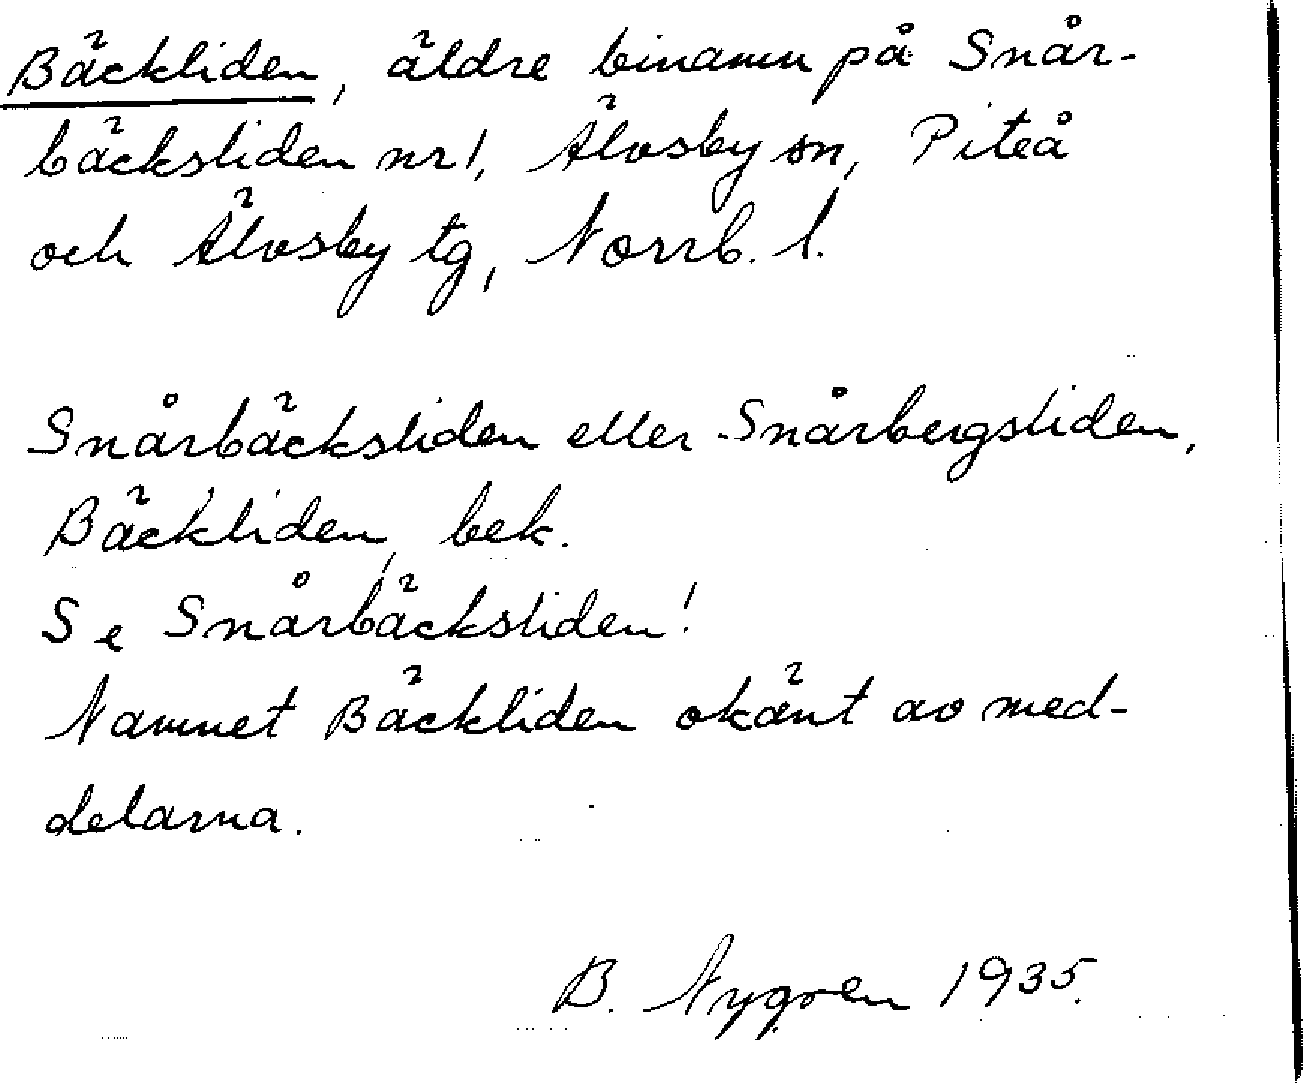 Bäckliden, äldre binamn på Snår-
bäcksliden nr 1, Älvsby sn, Piteå
och Älvsby tg, Norrb. l.
Snårbäcksliden eller Snårbergsliden,
Bäckliden, bek.
Se Snårbäcksliden!
Namnet Bäckliden okänt av med-
delarna.
B. Nygren 1935.